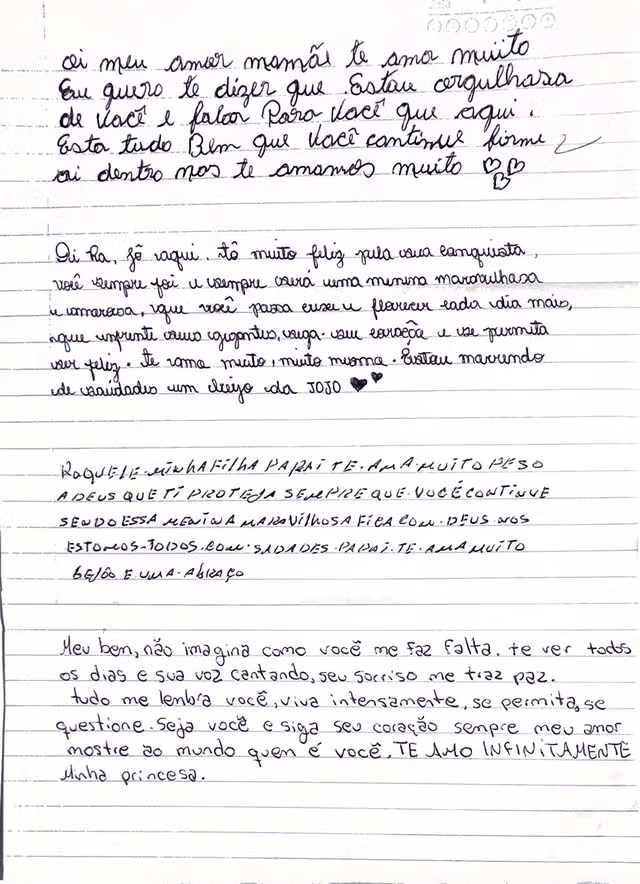 oi meu amor mamãe te ama muito
Eu quero te dizer que Estou orgulhosa
de você e falar Para você que aqui.
Esta tudo Bem que você continue firme
ai dentro nos te amamos muito
Oi Ra, Jô aqui. tô muito feliz pela sua conquista,
você sempre foi e sempre será uma menina maravilhosa
e amorosa, que você possa crescer e florescer cada dia mais,
que enfrente seus gigantes, siga seu coração e se permita
ser feliz. te amo muito, muito mesmo. Estou morrendo
de saudades um beijo da JOJO
RAQUELE MINHA FILHA PAPAI TE AMA MUITO PESO
A DEUS QUE TI PROTEJA SEMPRE QUE VOCÊ CONTINUE
SENDO ESSA MENINA MARAVILHOSA FICA COM DEUS NOS
ESTOMOS TODOS COM SADADES PAPAI TE AMA MUITO
BEJOO E UMA ABRAÇO
Meu bem, não imagina como você me faz falta. te ver todos
os dias e sua voz cantando, seu sorriso me traz paz.
tudo me lembra você, viva intensamente, se permita, se
questione. Seja você e siga seu coração sempre meu amor
mostre ao mundo quen é você. TE AMO INFINITAMENTE
Minha princesa.